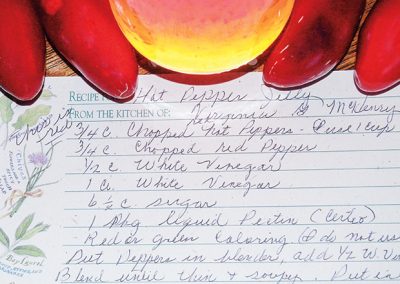 RECIPE FOR: Hot Pepper Jelly
FROM THE KITCHEN OF: Georginda B McHenry
This is
3/4 c. Chopped Hot Peppers - I use 1 cup
3/4 c. Chopped red Pepper
1/2 c. White Vinegar
1 C. White Vinegar
6 1/2 c. sugar
1 Pkg. liquid Pectin (Certo)
Red or Green Coloring (I do not us
Put Peppers in blender, add 1/2 W. Vin
Blend until thin & soupy. Put in
Chives
Bay Laurel